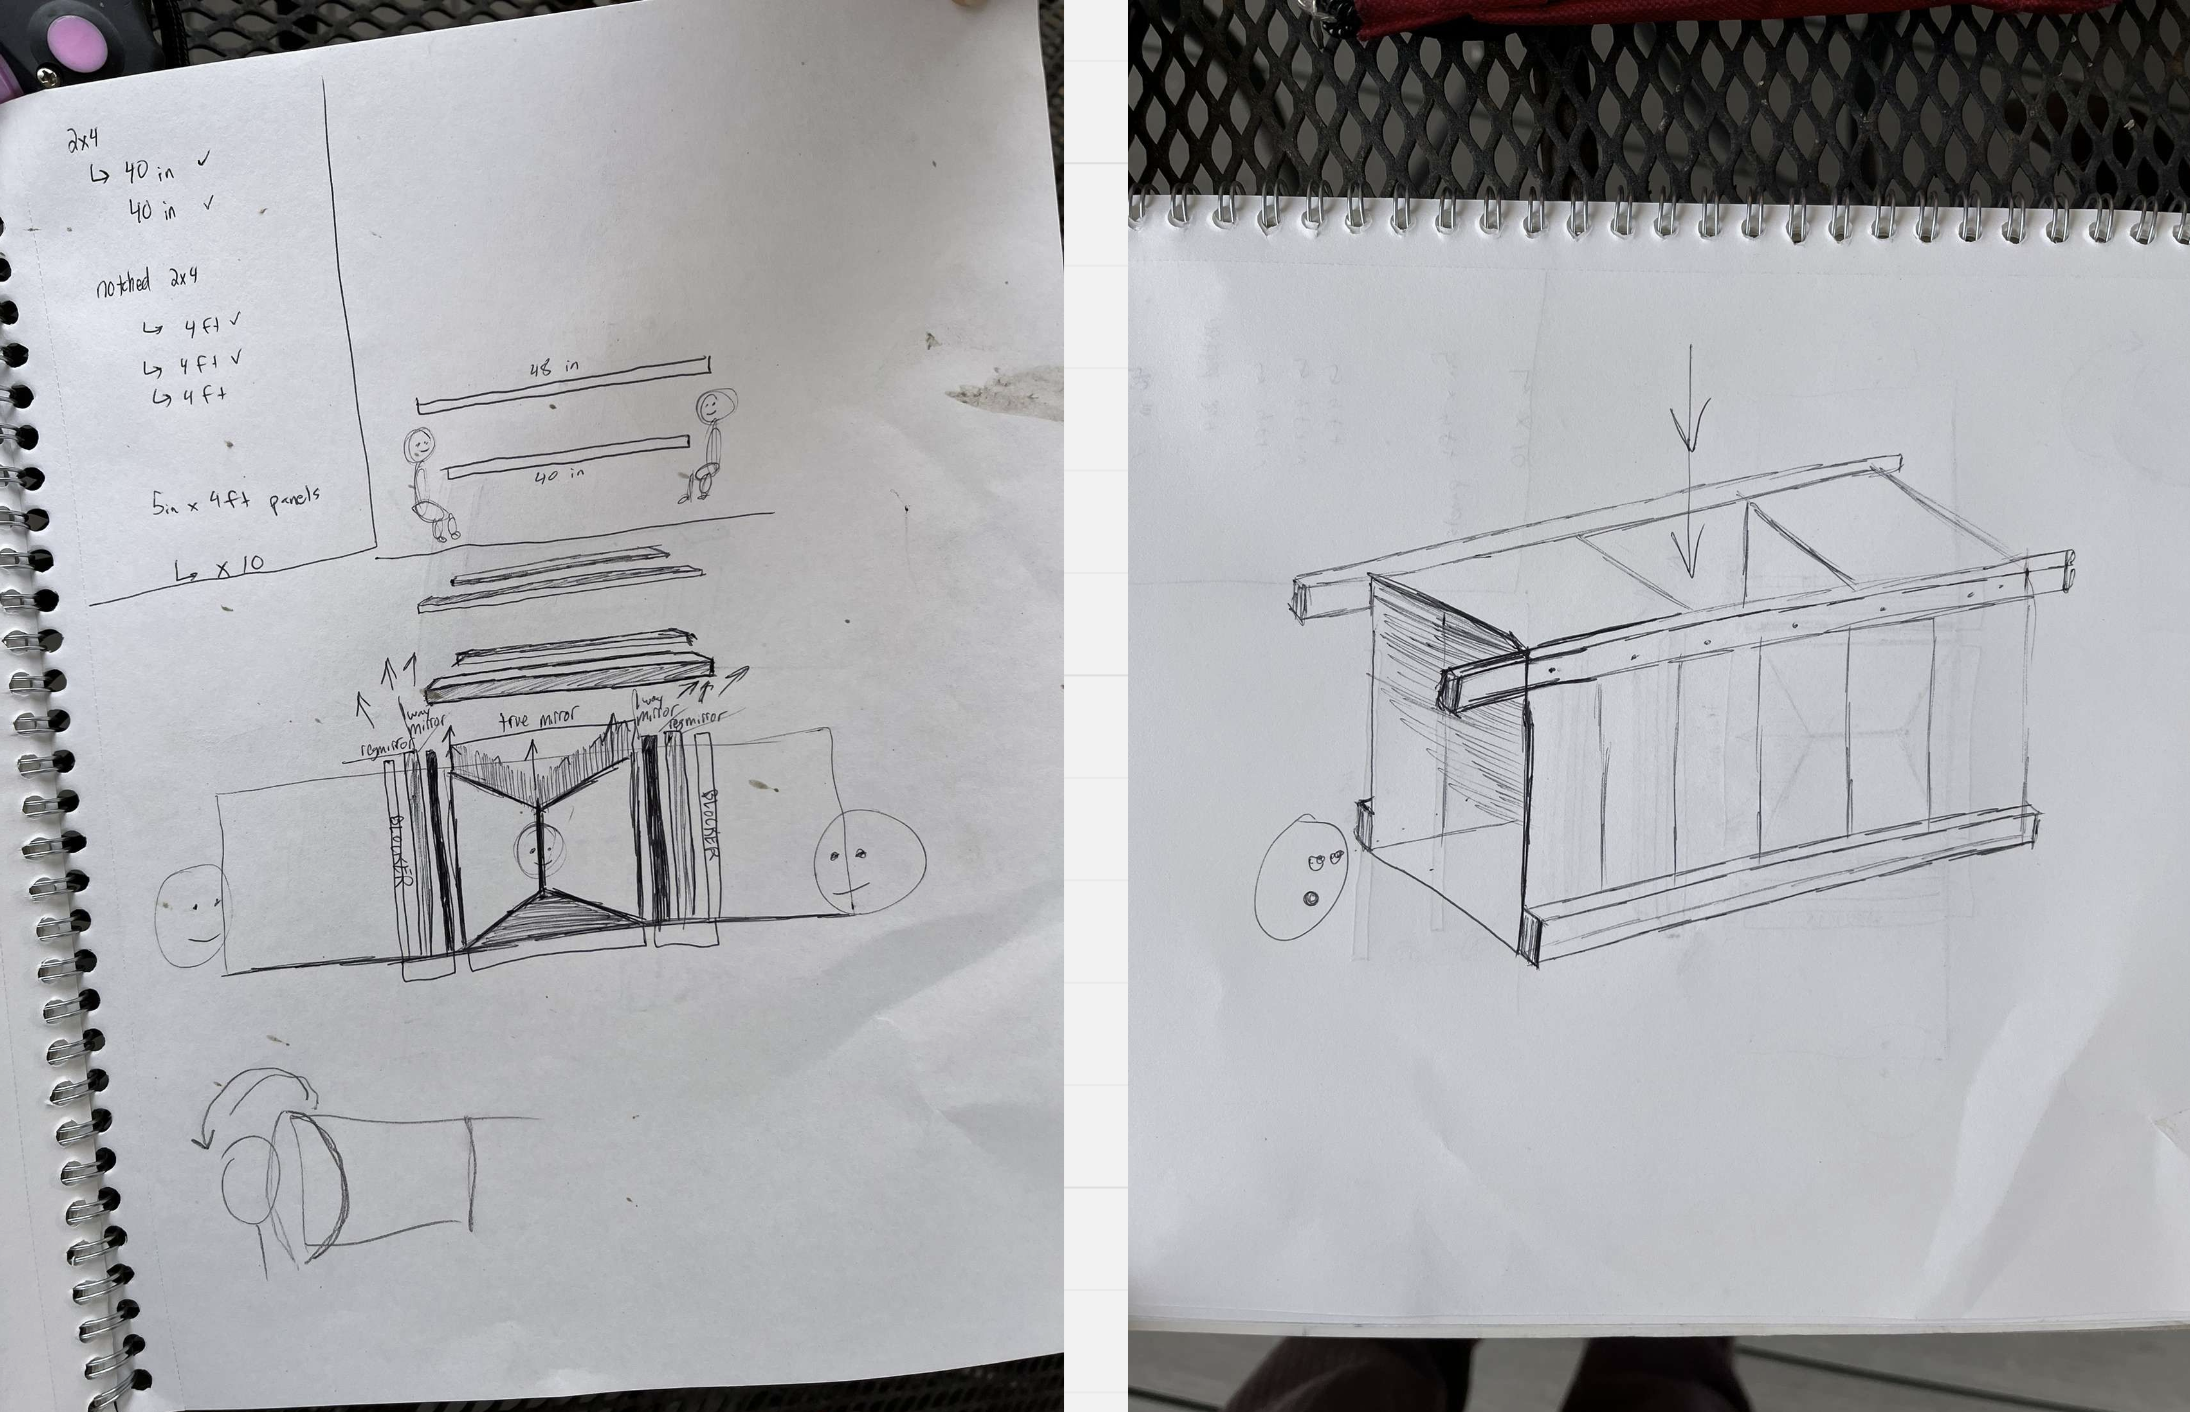 2x4
↳ 40 in ✓
40 in ✓
notched 2x4
↳ 4ft ✓
↳ 4ft ✓
↳ 4ft
5in x 4ft panels
↳ x10
48 in
40 in
1 way
mirror
regmirror
true mirror
1 way
mirror
regmirror
BLOCKER
BLOCKER